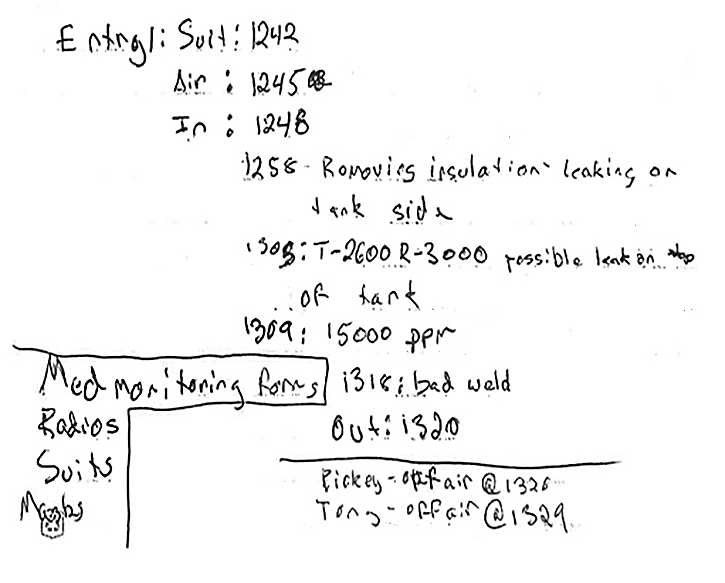 Entry 1: Suit: 1242
Air : 1245
In : 1248
1258 - Removing insulation - leaking on
tank side
1303: T-2600 R-3000 possible leak on
of tank
1309: 15000 ppm
Med monitoring forms
1318: bad weld
Radios
Out: 1320
Suits
- off air @ 1326
Tony - off air @ 1329